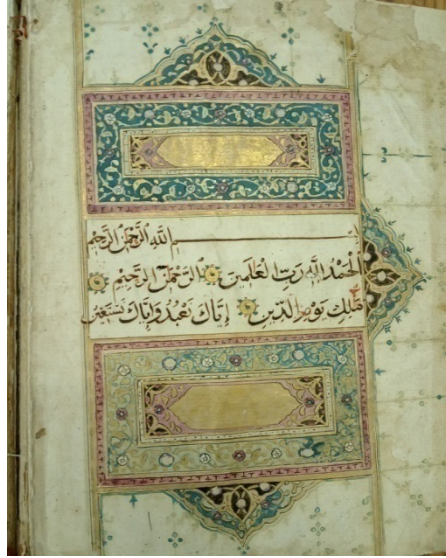 بسم الله الرحمن الرحيم
الحمد لله رب العلمين الرحمن الرحيم
ملك يوم الدين إياك نعبد وإياك نستعين